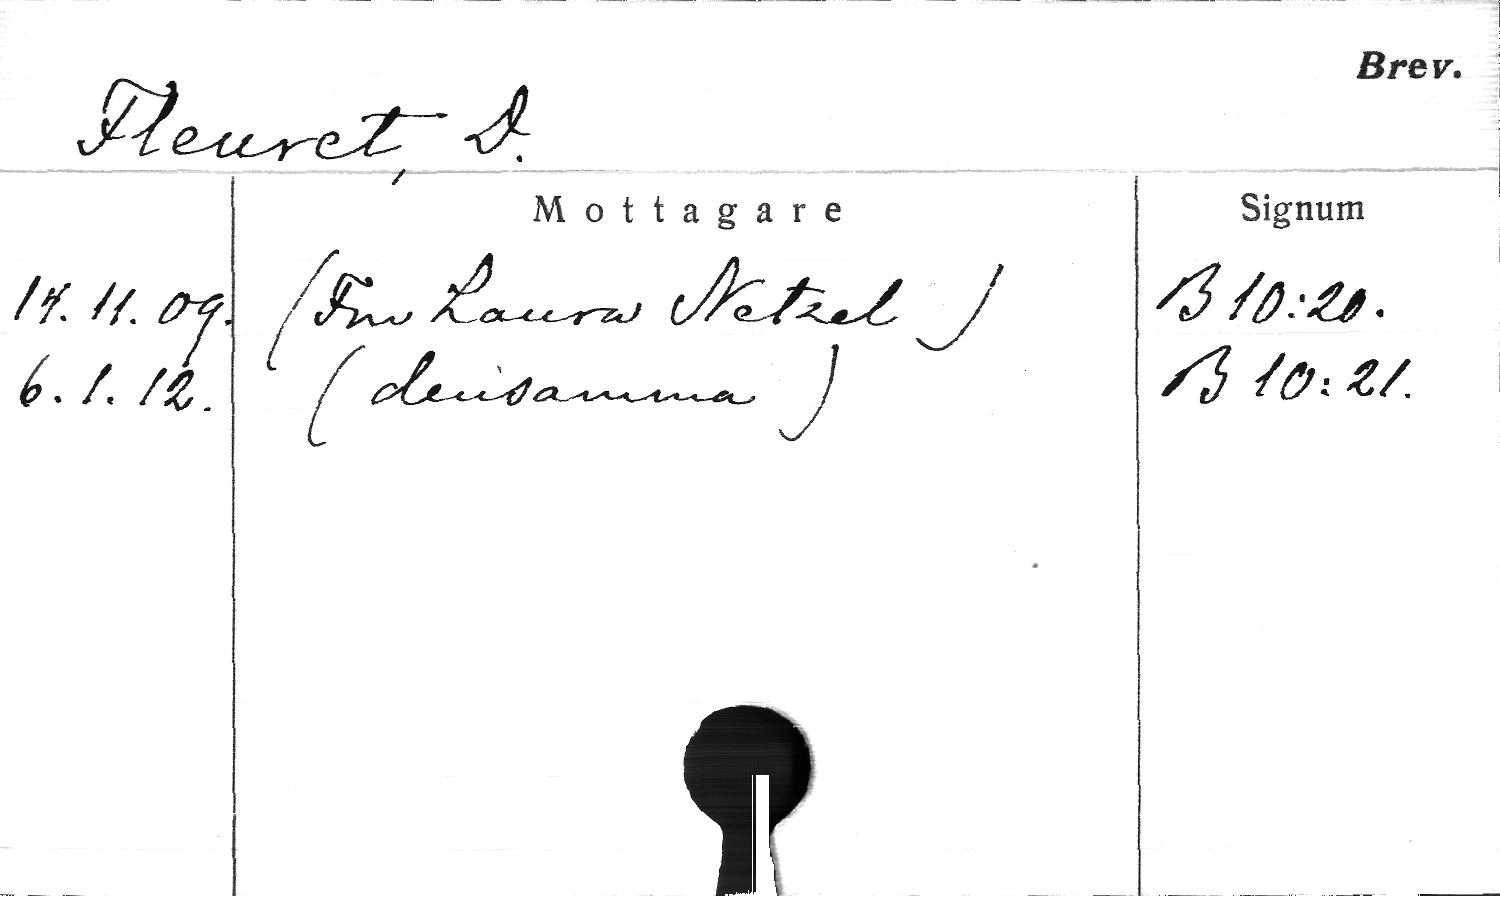 Brev.
Fleuret, D.
Mottagare Signum
14. 11. 09. (Fru Laura Netzel) B 10:20.
6. 1. 12. (densamma) B 10:21.